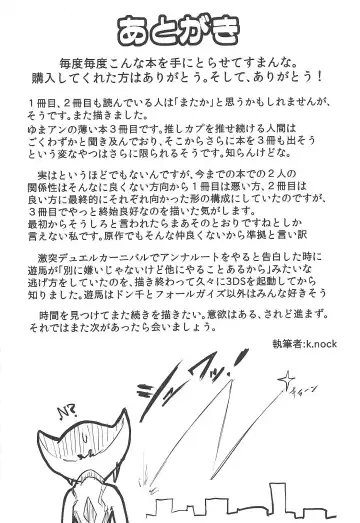 あとがき
毎度毎度こんな本を手にとらせてすまんな。
購入してくれた方はありがとう。そして、ありがとう!
1冊目、2冊目も読んでいる人は「またか」と思うかもしれませんが、
そうです。また描きました。
ゆまアンの薄い本3冊目です。推しカプを推せ続ける人間は
ごくわずかと聞き及んでおり、そこからさらに本を3冊も出そう
という変なやつはさらに限られるそうです。知らんけどな。
実はというほどでもないんですが、今までの本での2人の
関係性はそんなに良くない方向から1冊目は悪い方、2冊目は
良い方に最終的にそれぞれ向かった形の構成にしていたのですが、
3冊目でやっと終始良好なのを描いた気がします。
最初からそうしろと言われたらまあそのとおりですねとしか
言えない私です。原作でもそんな仲良くないから準拠と言い訳
激突デュエルカーニバルでアンナルートをやると告白した時に
遊馬が「別に嫌いじゃないけど他にやることあるから」みたいな
逃げ方をしていたのを、描き終わって久々に3DSを起動してから
知りました。遊馬はドン千とフォールガイズ以外はみんな好きそう
時間を見つけてまた続きを描きたい。意欲はある、されど進まず。
それではまた次があったら会いましょう。
執筆者:k.nock
ワッ!!
N?